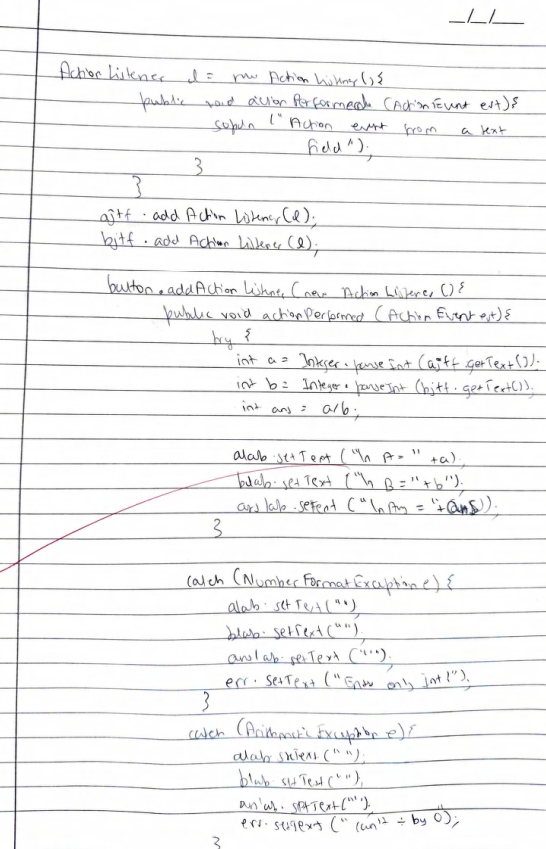 __/__/__
ActionListener l = new ActionListener() {
public void actionPerformed (ActionEvent evt) {
sopln ("Action event from a text
field");
}
}
ajtf . add Action Listener(l);
bjtf . add Action Listener (l);
button . addAction Listener (new Action Listener () {
public void actionPerformed (Action Event evt) {
try {
int a = Integer . parseInt (ajtf . getText());
int b = Integer . parseInt (bjtf . getText());
int ans = a/b;
alab . setText ("\n A = " +a);
blab . setText ("\n B = " + b");
anslab . setText ("\n Ans = "+ ans));
}
catch (Number Format Exception e) {
alab . setText ("");
blab . setText ("");
anslab . setText ("");
err . setText ("Enter only int!");
}
catch (Arithmetic Exception e) {
alab setText (" ");
blab setText (" ");
anlab . setText ("");
err . setText (" can't ÷ by 0");
}